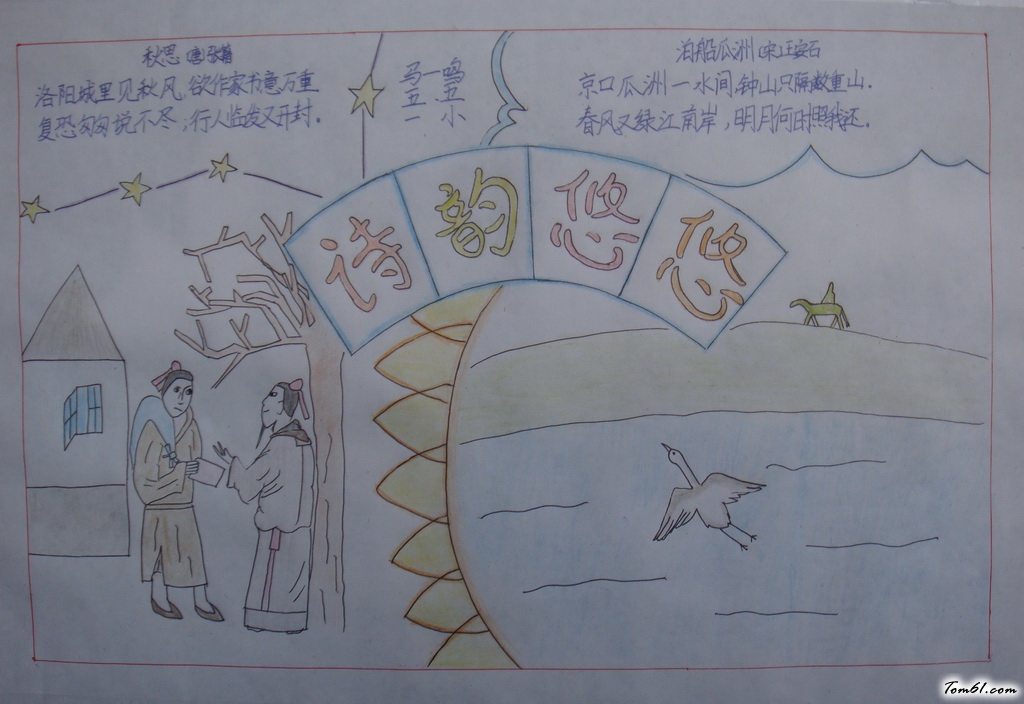 秋思 唐 张籍
洛阳城里见秋风,欲作家书意万重
复恐匆匆说不尽,行人临发又开封.
马一鸣
五.五
一 小
泊船瓜洲 宋 王安石
京口瓜洲一水间,钟山只隔数重山.
春风又绿江南岸,明月何时照我还.
诗韵悠悠
Tom61.com